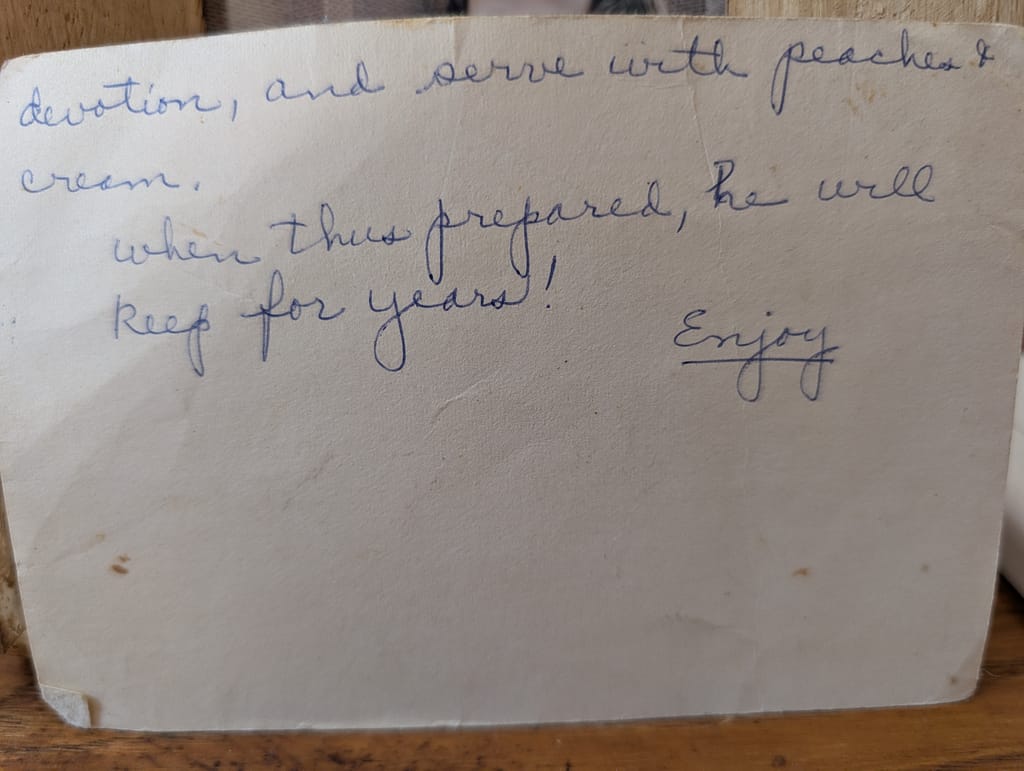 devotion, and serve with peaches &
cream.
when thus prepared, he will
keep for years!
Enjoy